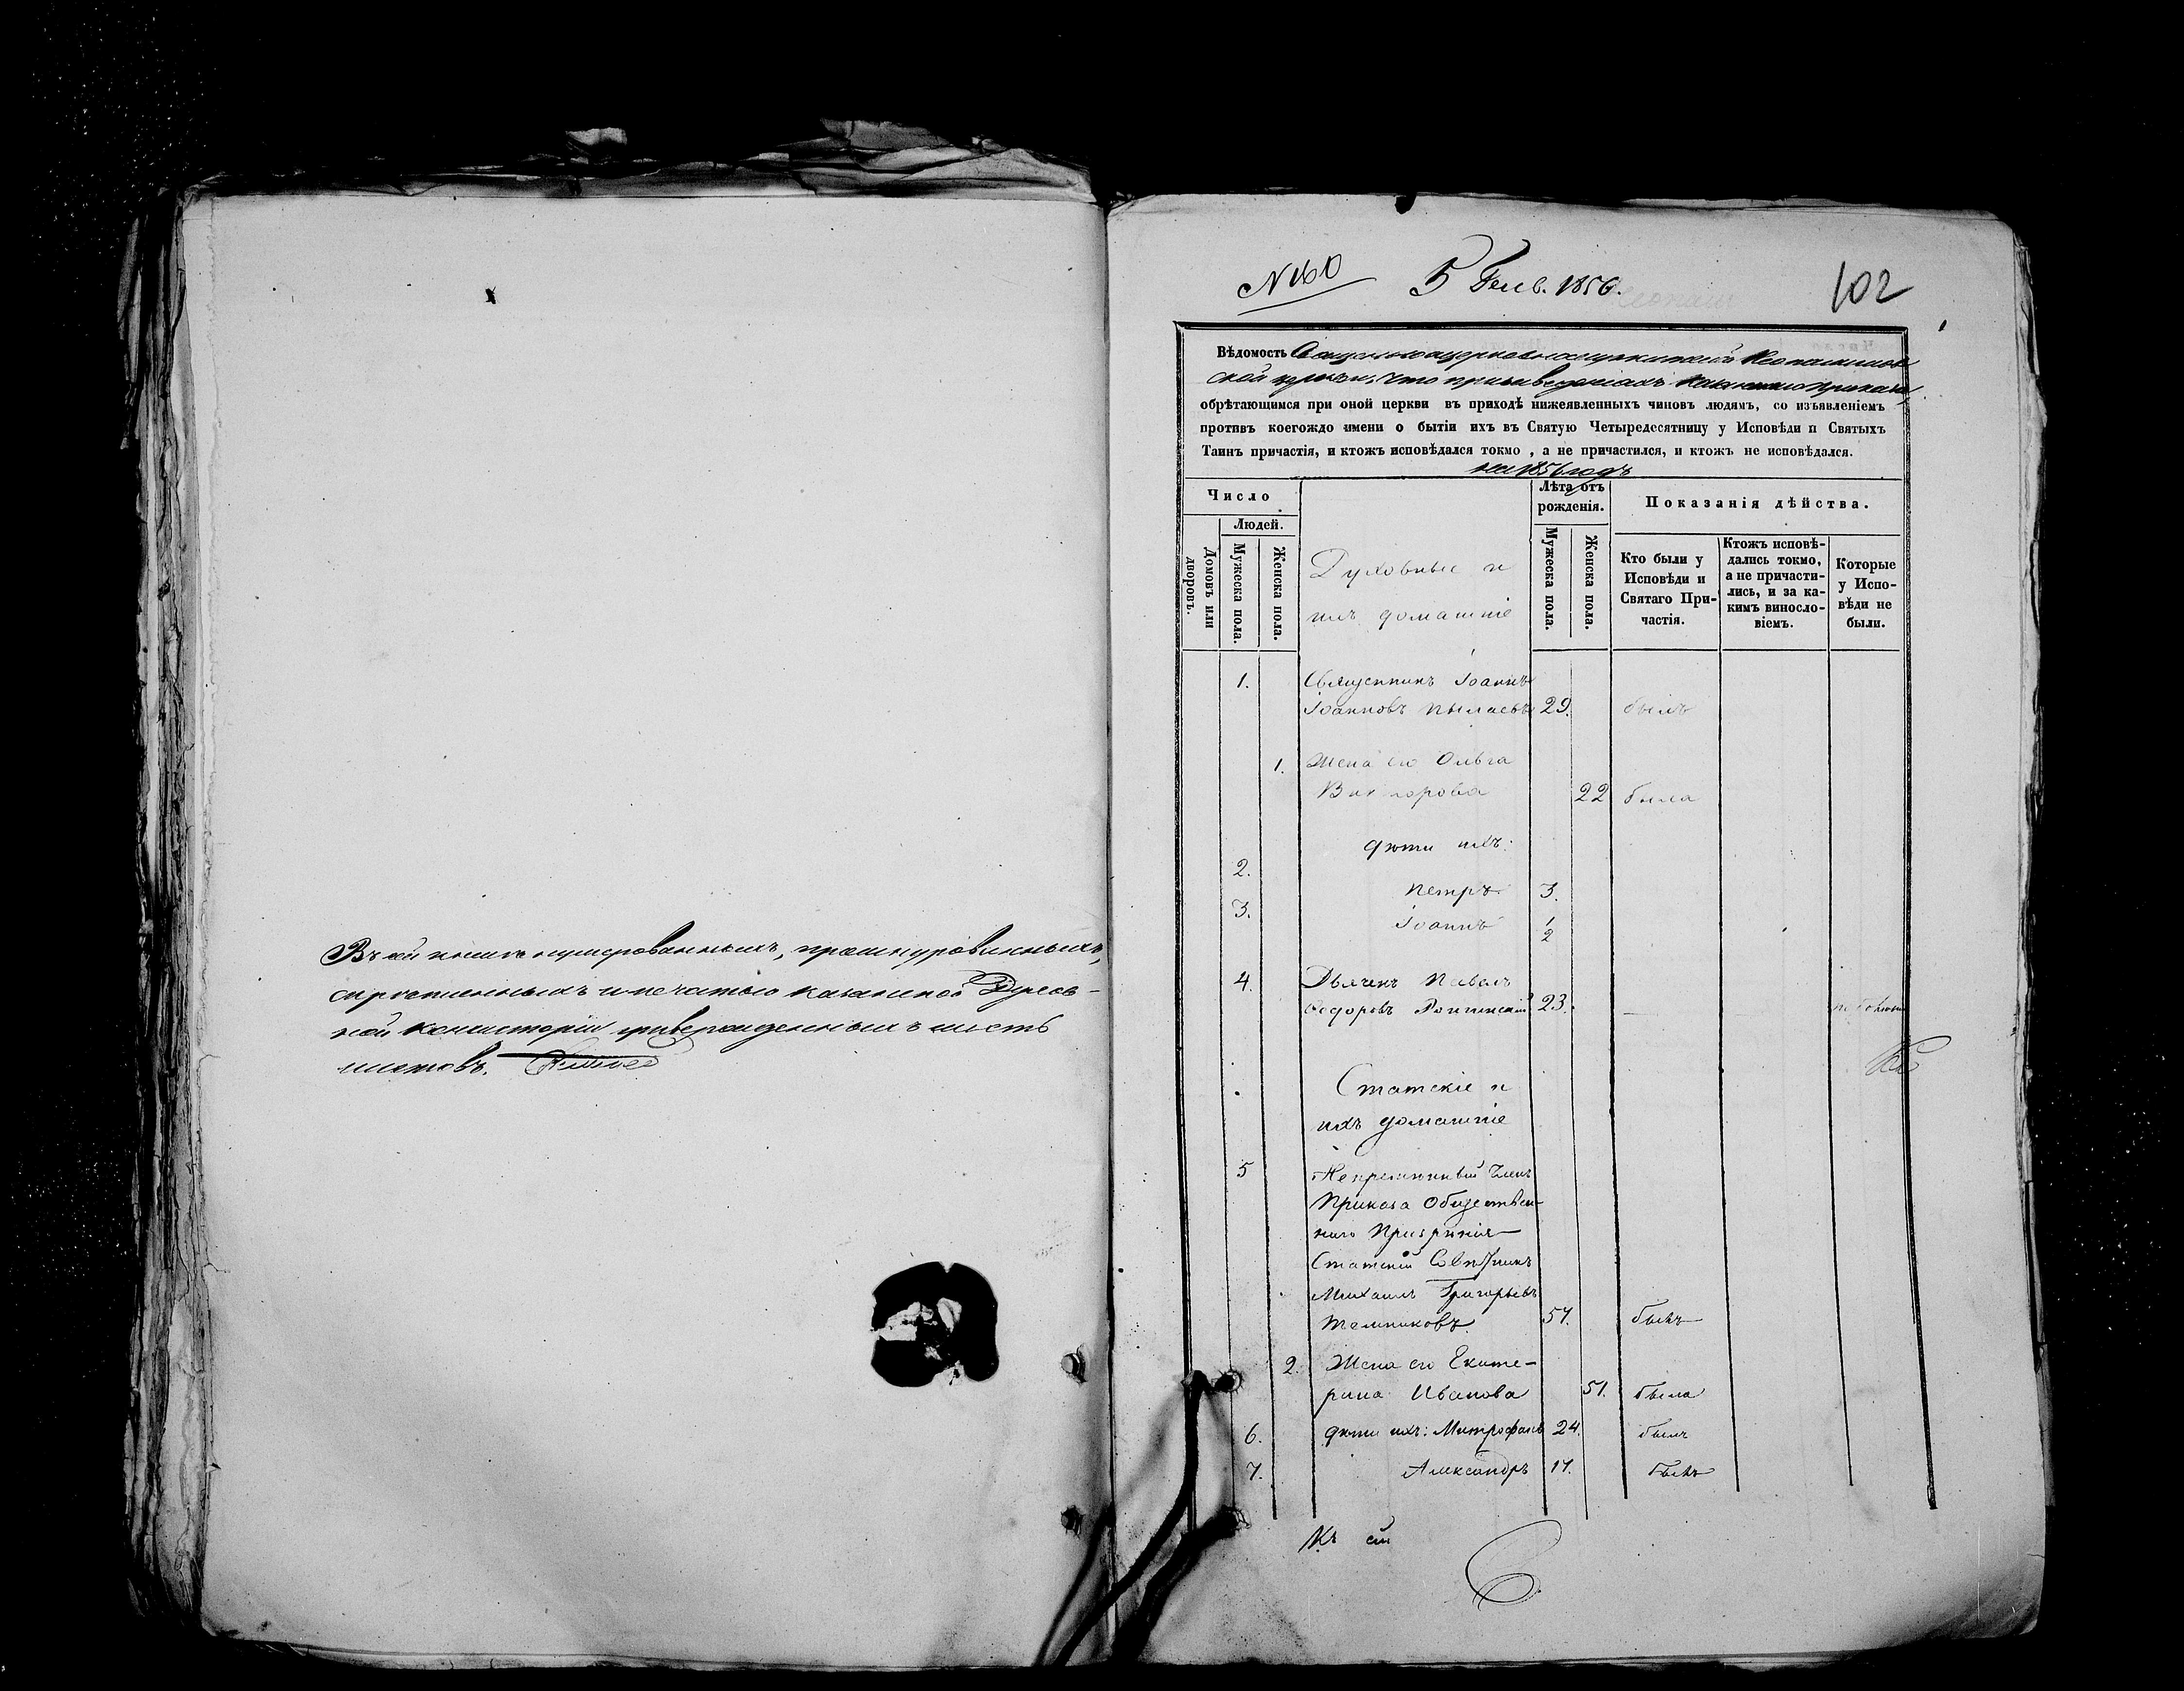 Въ сей книгѣ нумерованныхъ, прошнурованныхъ,
скрѣпленныхъ и печатью Казанской Духов-
ной Консисторіи утвержденныхъ шесть
листовъ.
N 160
5 Генв. 1856.
102
Вѣдомость Священноцерковнослужителей
ской церкви, что при заведеніяхъ Приказа,
обрѣтающимся при оной церкви въ приходѣ нижеявленныхъ чиновъ людямъ, со изъявленіемъ
противъ коегождо имени о бытіи ихъ въ Святую Четыредесятницу у Исповѣди и Святыхъ
Таинъ причастія, и ктожъ исповѣдался токмо, а не причастился, и ктожъ не исповѣдался.
на 1856 годъ
Число
Людей.
Домовъ или дворовъ.
Мужеска пола.
Женска пола.
Духовные и
ихъ домашніе
Лѣта отъ
рожденія.
Мужеска пола.
Женска пола.
Показанія дѣйства.
Кто были у
Исповѣди и
Святаго При-
частія.
Ктожъ исповѣ-
дались токмо,
а не причасти-
лись, и за ка-
кимъ винослo-
віемъ.
Которые
у Испо-
вѣди не
были.
1. Священникъ Іоаннъ
Іоанновъ Пылаевъ 29. былъ
1. Жена его Ольга
Викторова 22 была
дѣти ихъ:
2. Петръ 3.
3. Іоаннъ 1/2
4. Дьячекъ Павелъ
Ѳедоровъ 23.
Статскіе и
ихъ домашніе
5 Непремѣнный Членъ
Приказа Обществен-
наго Призрѣнія
Статскій Совѣтникъ
Михаилъ Григорьевъ
57. былъ
2. Жена его Екате-
рина Иванова 51. была
6. дѣти ихъ: Митрофанъ 24. былъ
7. Александръ 17. былъ
Къ сей